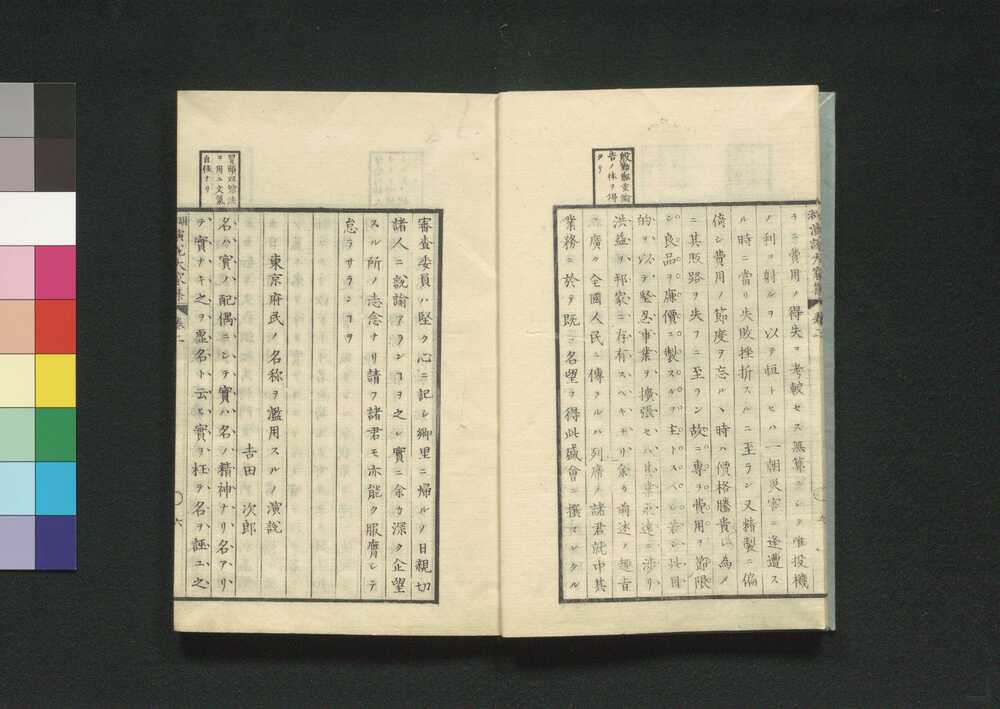 キニ費用ノ得失ヲ考較セス無算ニシク唯投機
ノ利ヲ射ルヲ以テ恒トセハ一朝災害ニ逢遭ス
ル時ニ當リ失敗挫折スルニ至ラン又精製ニ偏
倚シ費用ノ節度ヲ忘ルヽ時ハ價格騰貴シ為メ
ニ其販路ヲ失フニ至ラン故ニ專ヲ費用ヲ節限
シ良品ヲ廉價ニ製スルヲ主トスベシ若シ此目
的ヲ以テ堅忍事業ヲ擴張セハ此業永遠ニ渉リ
洪益ヲ邦家ニ存有スベキナリ余カ前述ノ趣旨
廣ク全國人民ニ傳フルハ列席ノ諸君就中其
業務ニ於テ既ニ名望ヲ得此盛會ニ撰マレタル
告ノ体ヲ得
タリ
審査委員ハ堅ク心ニ記シ郷里ニ帰ルノ日親切
諸人ニ説諭アランコヲ之レ實ニ余カ深ク企望
スル所ノ志念ナリ請フ諸君モ亦能ク服膺シテ
怠ラサランコヲ
東京府民ノ名称ヲ濫用スルノ演説
吉田 次郎
名ハ實ノ配偶ニシテ實ハ名ノ精神ナリ名アリ
テ實ナキ之ヲ虚名ト云ヒ實ヲ枉テ名ヲ誣ユ之
ヲ用ユ文氣
自在ナリ
演説大家集 卷二
六